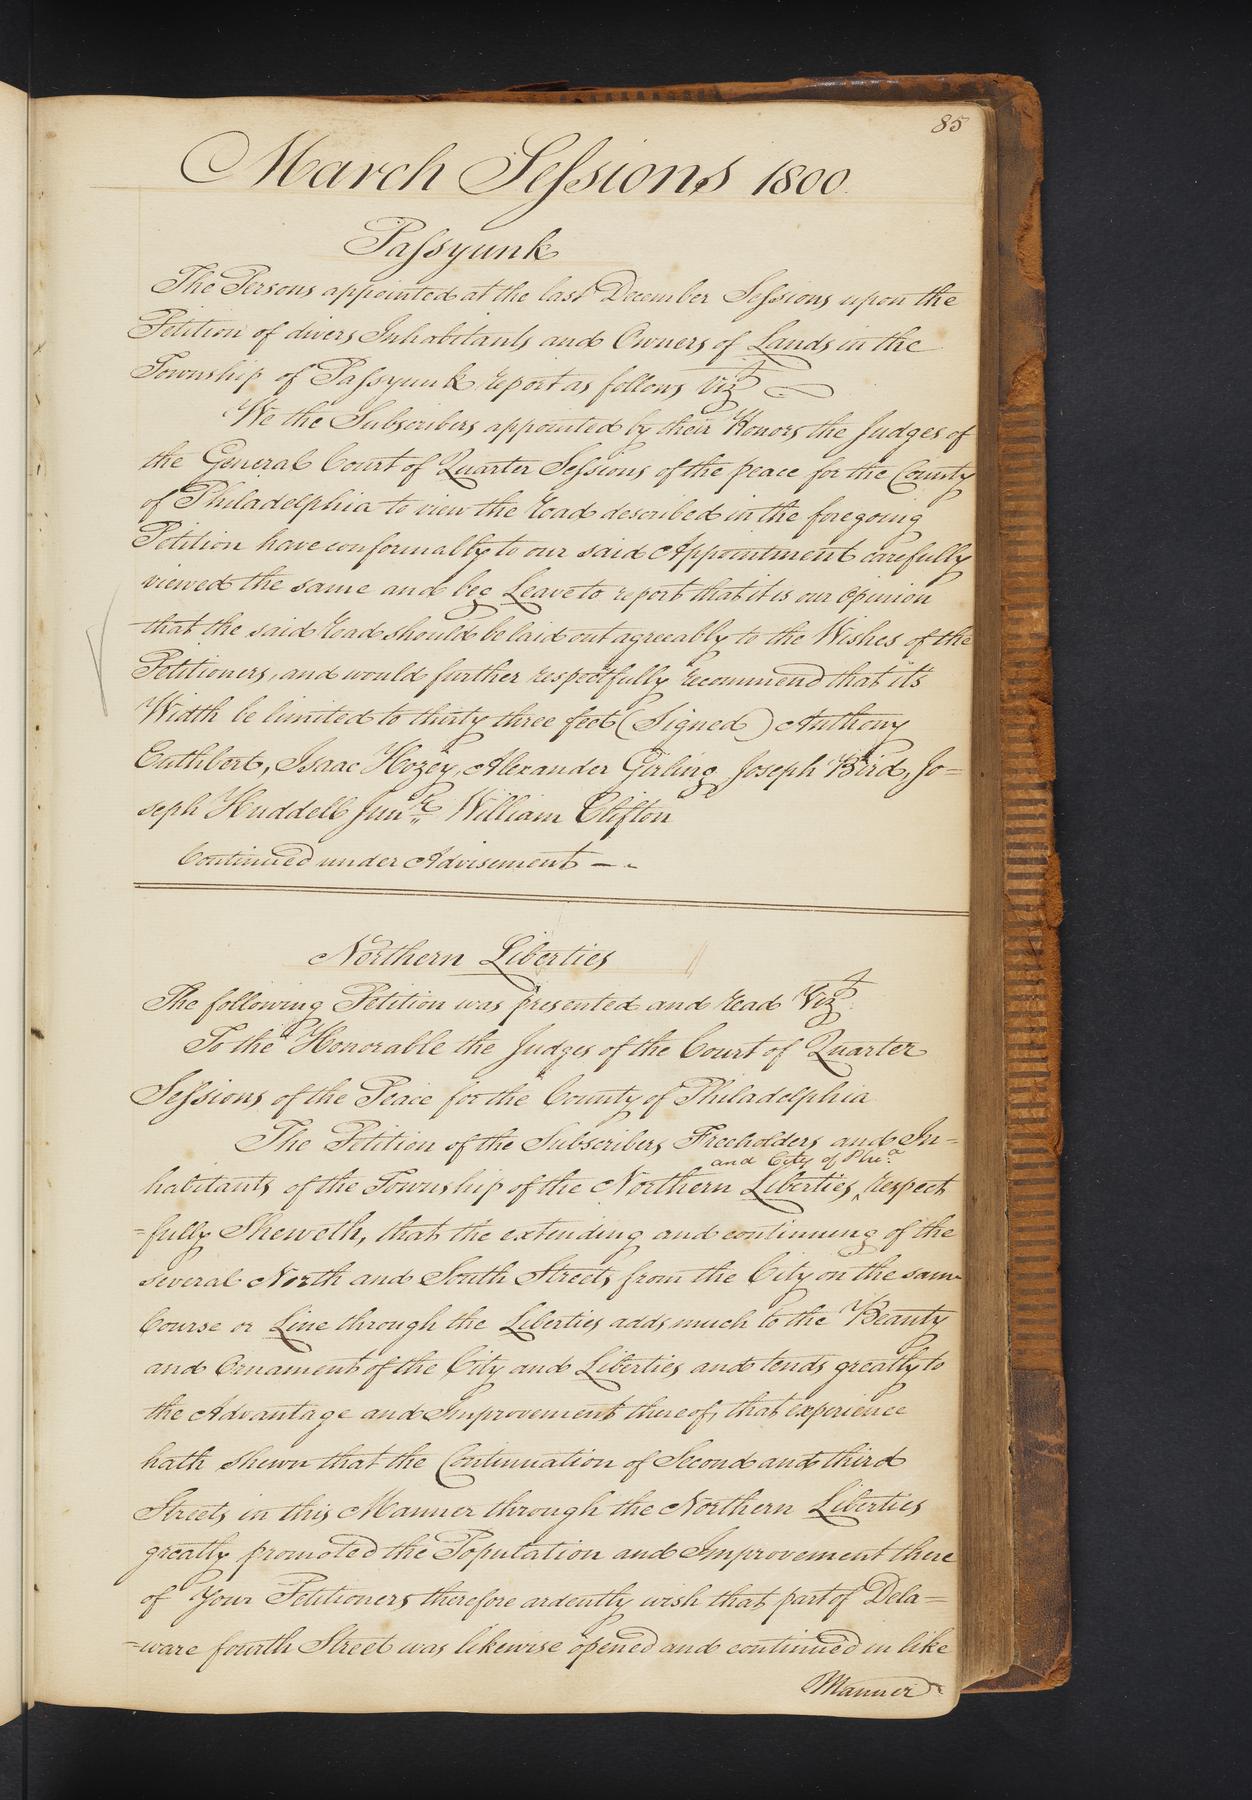 85
March Sessions 1800.
Passyunk
The Persons appointed at the last December Sessions upon the
Petition of divers Inhabitants and Owners of Lands in the
Township of Passyunk report as follows Vizt
We the Subscribers appointed by their Honors the Judges of
the General Court of Quarter Sessions of the peace for the County
of Philadelphia to view the Road described in the foregoing
Petition have conformably to our said Appointment carefully
viewed the same and beg Leave to report that it is our Opinion
that the said Road should be laid out agreeably to the Wishes of the
Petitioners, and would further respectfully recommend that it's
Width be limited to thirty three feet (Signed) Anthony
Cuthbert, Isaac Hozey, Alexander Girling Joseph Bird, Jo=
seph Huddell Junr. William Clifton
Continued under Advisement —
Northern Liberties
The following Petition was presented and read Vizt.
To the Honorable the Judges of the Court of Quarter
Sessions of the Peace for the County of Philadelphia
The Petition of the Subscribers Freeholders and In=
and City of Phia.
habitants of the Township of the Northern Liberties, ‸ respect
=fully Sheweth, that the extending and continuing of the
several North and South Streets from the City on the same
Course or Line through the Liberties adds much to the Beauty
and Ornament of the City and Liberties and tends greatly to
the Advantage and Improvement thereof, that experience
hath shewn that the Continuation of Second and third
Streets in this Manner through the Northern Liberties
greatly promoted the Population and Improvement there
of Your Petitioners therefore ardently wish that part of Dela=
=ware fourth Street was likewise opened and continued in like
Manner